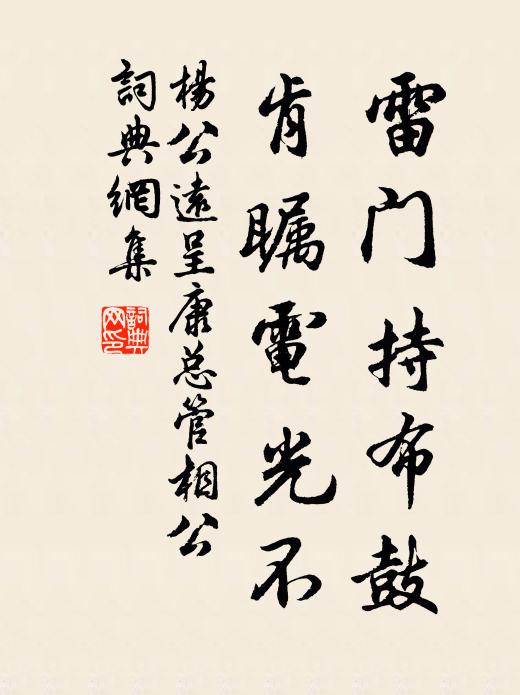 雷门持布鼓
肯瞩電光不
楊公遠呈康总管相公
詞典網集
詞典
网印